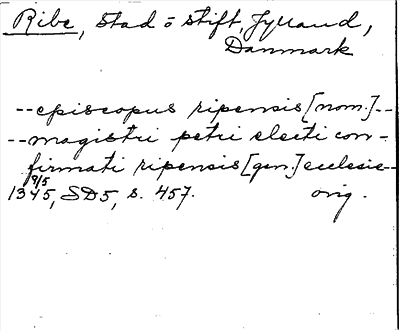 Ribe, stad o stift, Jylland,
Danmark
--episcopus ripensis [nom.]--
--magistri petri electi con-
firmati ripensis [gen.] ecclesie--
9/5
1345, SD5, s. 457. orig.